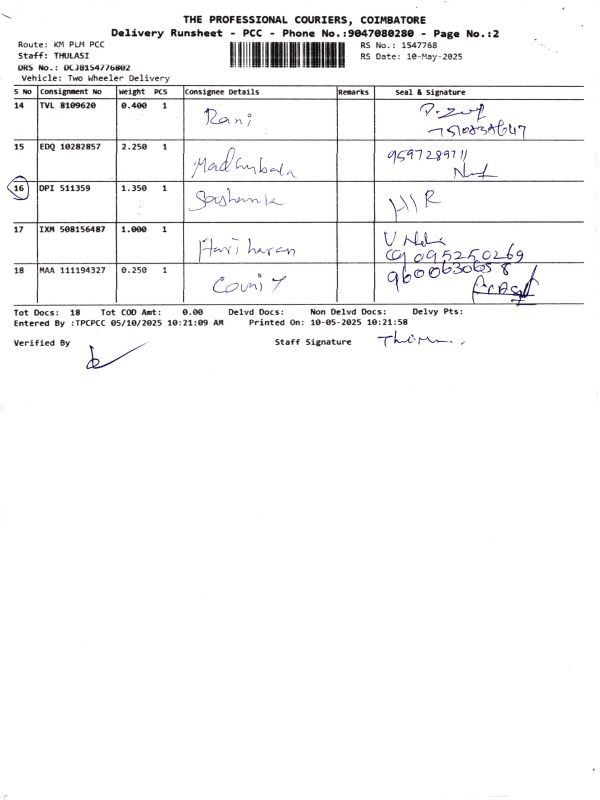 THE PROFESSIONAL COURIERS, COIMBATORE
Delivery Runsheet - PCC - Phone No.:9047080280 - Page No.:2
Route: KM PLM PCC RS No.: 1547768
Staff: THULASI RS Date: 10-May-2025
DRS No.: DCJB154776802
Vehicle: Two Wheeler Delivery
S No Consignment No Weight PCS Consignee Details Remarks Seal & Signature
14 TVL 8109620 0.400 1 Rani
15 EDQ 10282857 2.250 1 Madhubala 9597289711
16 DPI 511359 1.350 1 Sashank HIR
17 IXM 508156487 1.000 1 Hari haran 9095250269
18 MAA 111194327 0.250 1 9600630658
Tot Docs: 18 Tot COD Amt: 0.00 Delvd Docs: Non Delvd Docs: Delvy Pts:
Entered By :TPCPCC 05/10/2025 10:21:09 AM Printed On: 10-05-2025 10:21:58
Verified By Staff Signature